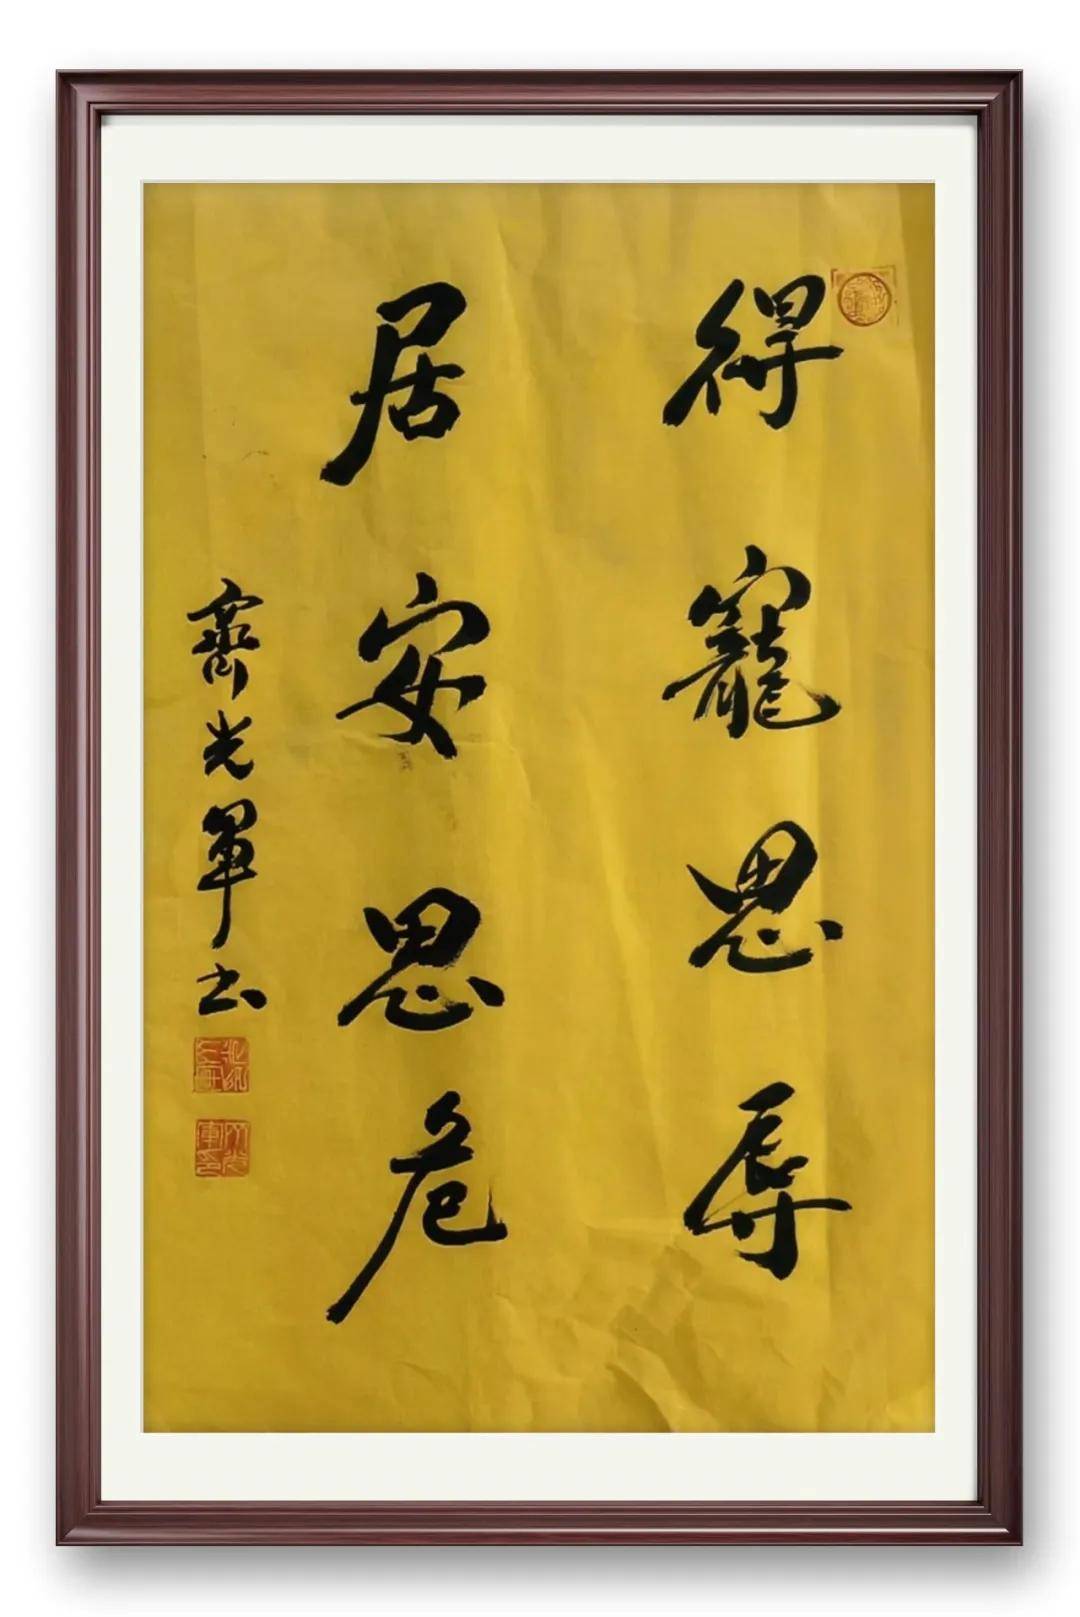 得寵思辱
居安思危
齊光軍书